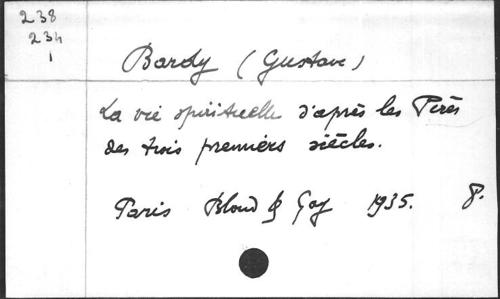 238
234
1
Bardy (Gustave)
La vie spirituelle d'après les Pères
des trois premiers siècles.
Paris Bloud & Gay 1935. 8.